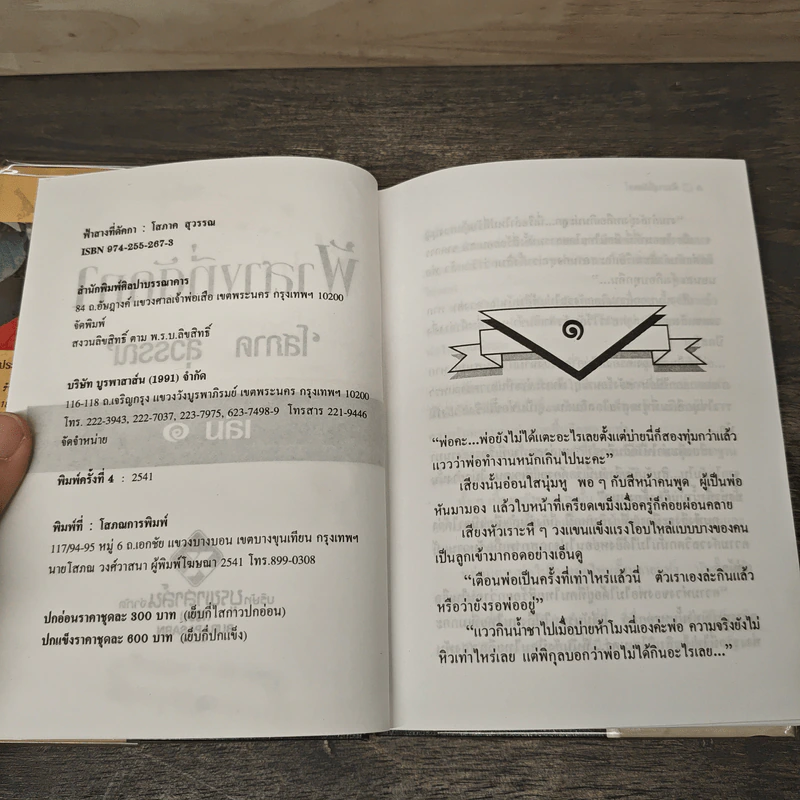 ฟ้าสางที่ดัคกา : โสภาค สุวรรณ
ISBN 974-255-267-3
สำนักพิมพ์ศิลปาบรรณาคาร
84 ถ.อัษฎางค์ แขวงศาลเจ้าพ่อเสือ เขตพระนคร กรุงเทพฯ 10200
จัดพิมพ์
สงวนลิขสิทธิ์ ตาม พ.ร.บ.ลิขสิทธิ์
บริษัท บูรพาสาส์น (1991) จำกัด
116-118 ถ.เจริญกรุง แขวงวังบูรพาภิรมย์ เขตพระนคร กรุงเทพฯ 10200
โทร. 222-3943, 222-7037, 223-7975, 623-7498-9 โทรสาร 221-9446
จัดจำหน่าย
พิมพ์ครั้งที่ 4 : 2541
พิมพ์ที่ : โสภณการพิมพ์
117/94-95 หมู่ 6 ถ.เอกชัย แขวงบางบอน เขตบางขุนเทียน กรุงเทพฯ
นายโสภณ วงศ์วาสนา ผู้พิมพ์โฆษณา 2541 โทร.899-0308
ปกอ่อนราคาชุดละ 300 บาท (เย็บกี่ไสกาวปกอ่อน)
ปกแข็งราคาชุดละ 600 บาท (เย็บกี่ปกแข็ง)
๑
“พ่อคะ...พ่อยังไม่ได้แตะอะไรเลยตั้งแต่บ่ายนี่ก็สองทุ่มกว่าแล้ว
แววว่าพ่อทำงานหนักเกินไปนะคะ”
เสียงนั้นอ่อนใสนุ่มหู พอ ๆ กับสีหน้าคนพูด ผู้เป็นพ่อ
หันมามอง แล้วใบหน้าที่เครียดเขม็งเมื่อครู่ก็ค่อยผ่อนคลาย
เสียงหัวเราะหึ ๆ วงแขนแข็งแรงโอบไหล่แบบบางของคน
เป็นลูกเข้ามากอดอย่างเอ็นดู
“เตือนพ่อเป็นครั้งที่เท่าไหร่แล้วนี่ ตัวเราเองล่ะกินแล้ว
หรือว่ายังรอพ่ออยู่”
“แววกินน้ำชาไปเมื่อบ่ายห้าโมงนี่เองค่ะพ่อ ความจริงยังไม่
หิวเท่าไหร่เลย แต่พิกุลบอกว่าพ่อไม่ได้กินอะไรเลย...”